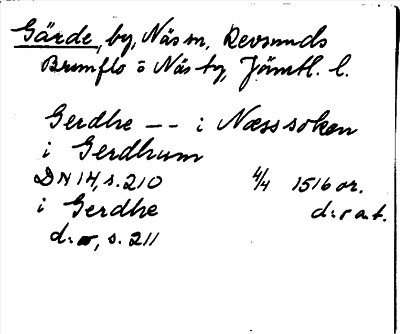 Gärde, by, Näs sn, Revsunds
Brunflo o Näs tg, Jämtl. l.
Gerdhe -- i Næssoken
i Gerdhum
DN 14, s. 210 4/4 1516 or.
i Gerdhe d:o a.t.
d:o, s. 211